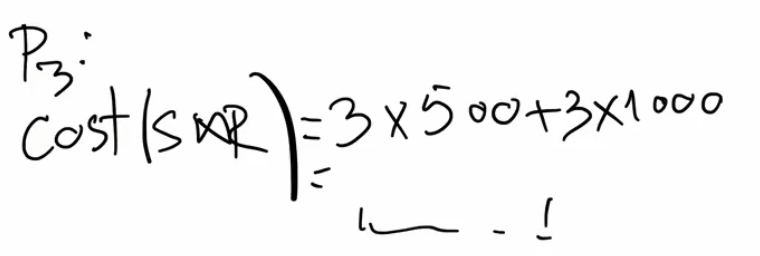 P3:
Cost(S⋈R) = 3 × 500 + 3 × 1000
=